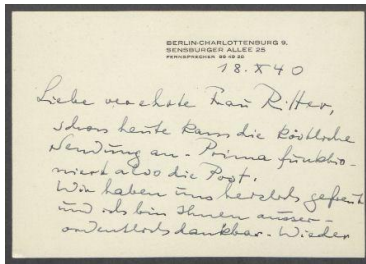 BERLIN-CHARLOTTENBURG 9,
SENSBURGER ALLEE 25
FERNSPRECHER
18. X 40
Liebe verehrte Frau Ritter,
schon heute kam die köstliche
Sendung an. Prima funktio-
niert also die Post.
Wir haben uns herzlich gefreut
und ich bin Ihnen ausser-
ordentlich dankbar. Wieder